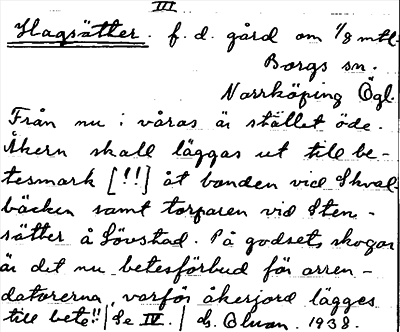 III
Hagsätter. f. d. gård om 1/8 mtl.
Borgs sn.
Norrköping Ögl.
Från nu i våras är stället öde.
Åkern skall läggas ut till be-
tesmark [!!] åt bonden vid Skval-
bäcken samt torparen vid Sten-
sätter å Lövstad. På godsets skogar
är det nu betesförbud för arren-
datorerna, varför åkerjord lägges
till bete!! | Se IV. | 1938.